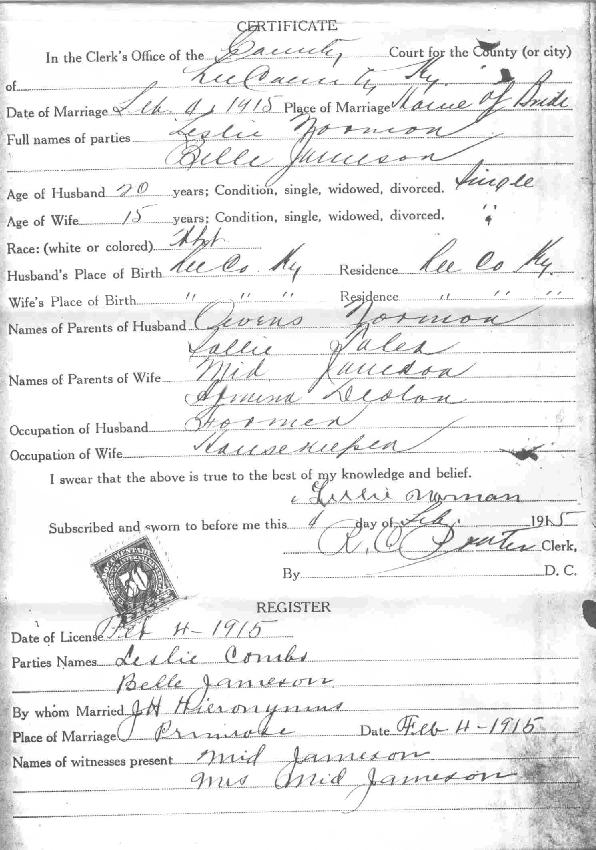 CERTIFICATE
In the Clerk's Office of the County Court for the County (or city)
of Lee County Ky.
Date of Marriage Feb 4, 1915 Place of Marriage Home of Bride
Full names of parties Leslie Norman
Belle Jameson
Age of Husband 20 years; Condition, single, widowed, divorced. Single
Age of Wife 15 years; Condition, single, widowed, divorced. "
Race: (white or colored)
Husband's Place of Birth Lee Co Ky Residence Lee Co Ky.
Wife's Place of Birth " " " Residence " " "
Names of Parents of Husband Owens Norman
Sallie
Names of Parents of Wife Mid Jameson
Deaton
Occupation of Husband Farmer
Occupation of Wife Housekeeper
I swear that the above is true to the best of my knowledge and belief.
Leslie Norman
Subscribed and sworn to before me this 4 day of Feb. 1915
R. C. Clerk,
By D. C.
REGISTER
Date of License Feb 4 - 1915
Parties Names Leslie Combs
Belle Jameson
By whom Married J H Hieronymus
Place of Marriage Primrose Date Feb 4 - 1915
Names of witnesses present Mid Jameson
Mrs Mid Jameson